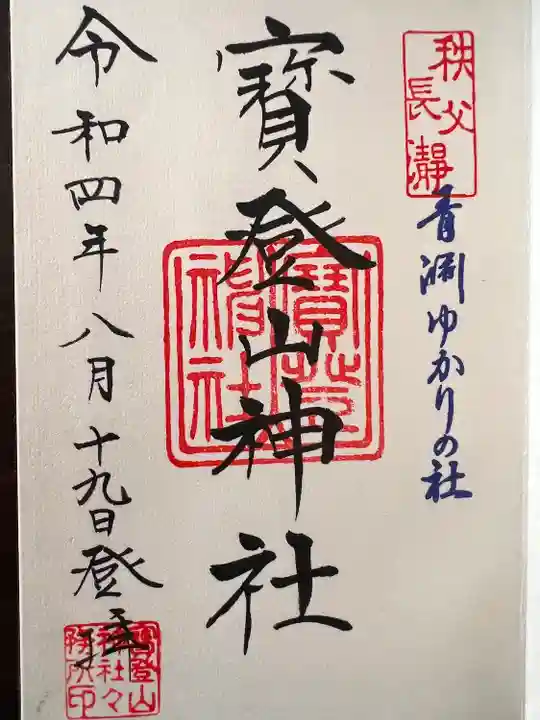 秩父
長瀞
青淵ゆかりの社
寶登山神社
令和四年八月十九日登拝
寶登山
神社々
務所印